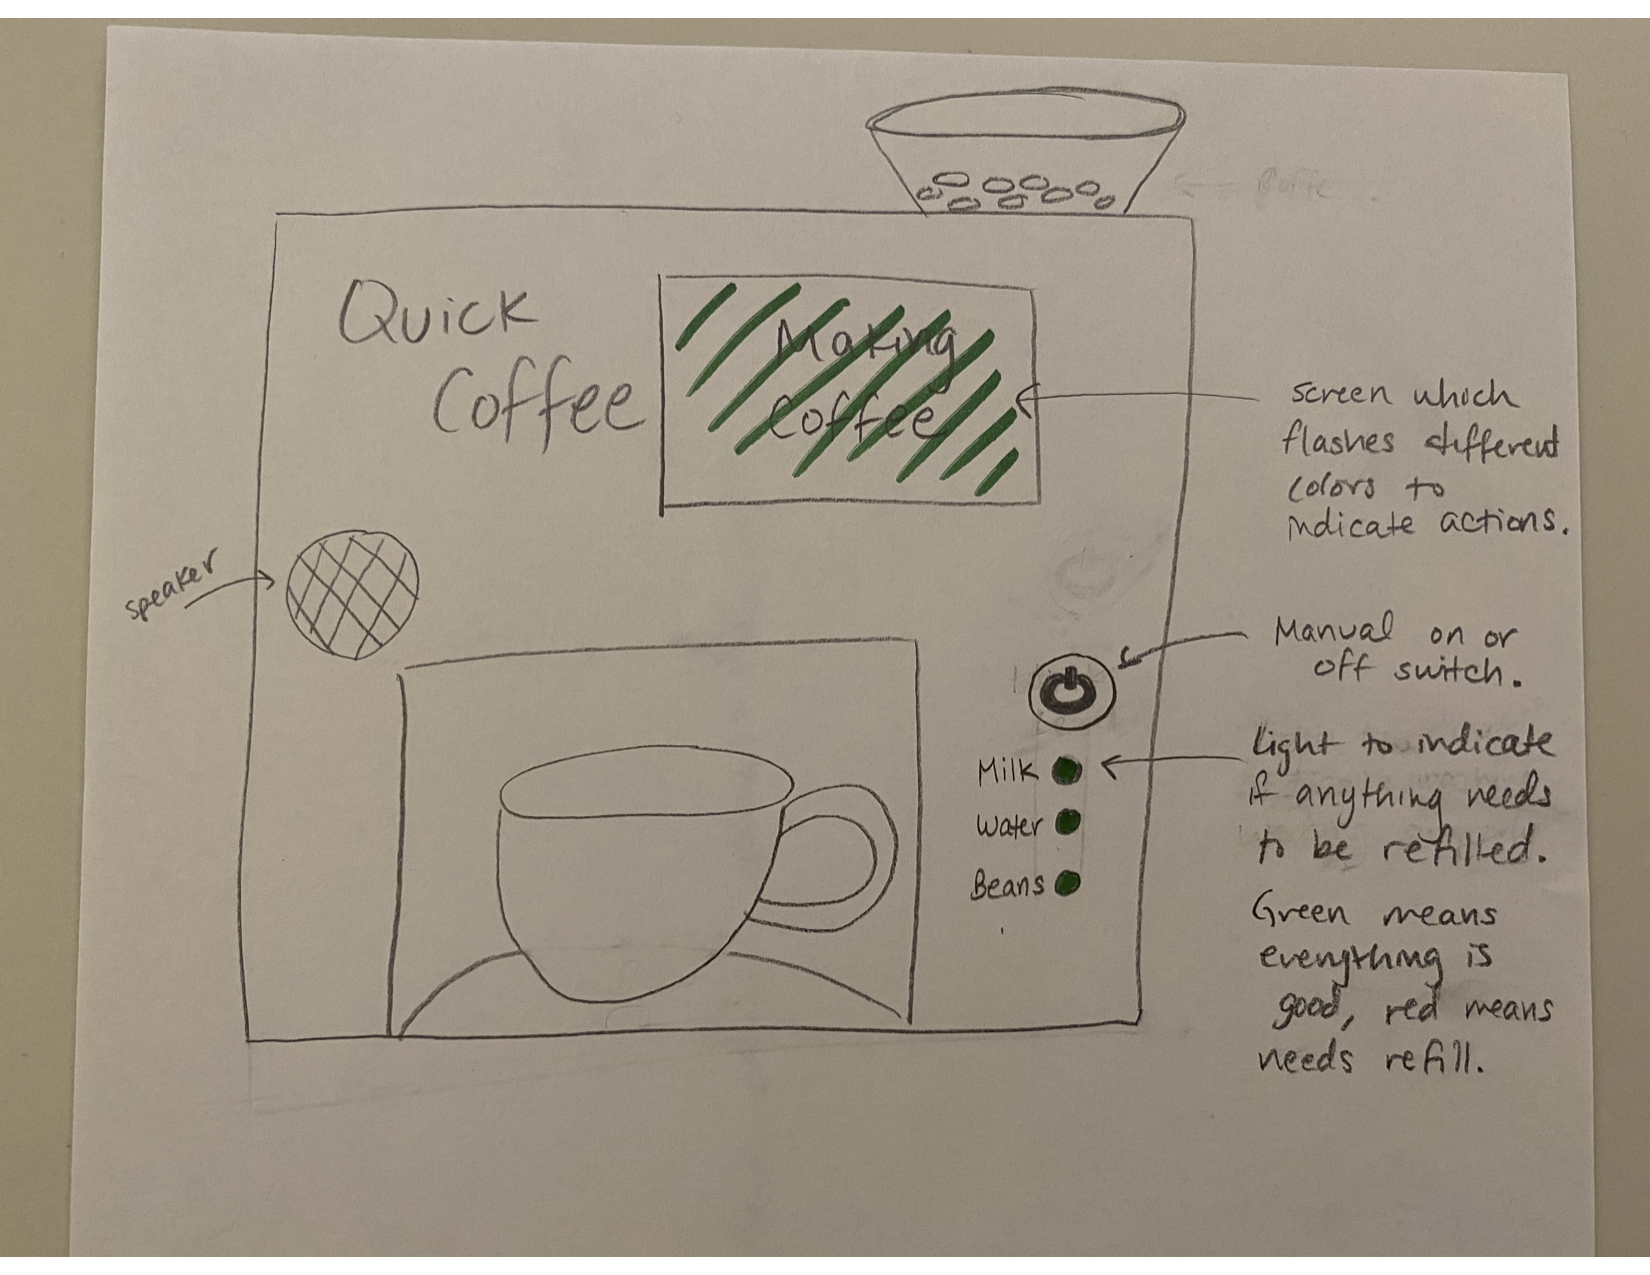 Quick
Coffee
Making
Coffee
screen which
flashes different
colors to
indicate actions.
speaker
Manual on or
off switch.
Light to indicate
if anything needs
to be refilled.
Milk
Water
Beans
Green means
everything is
good, red means
needs refill.